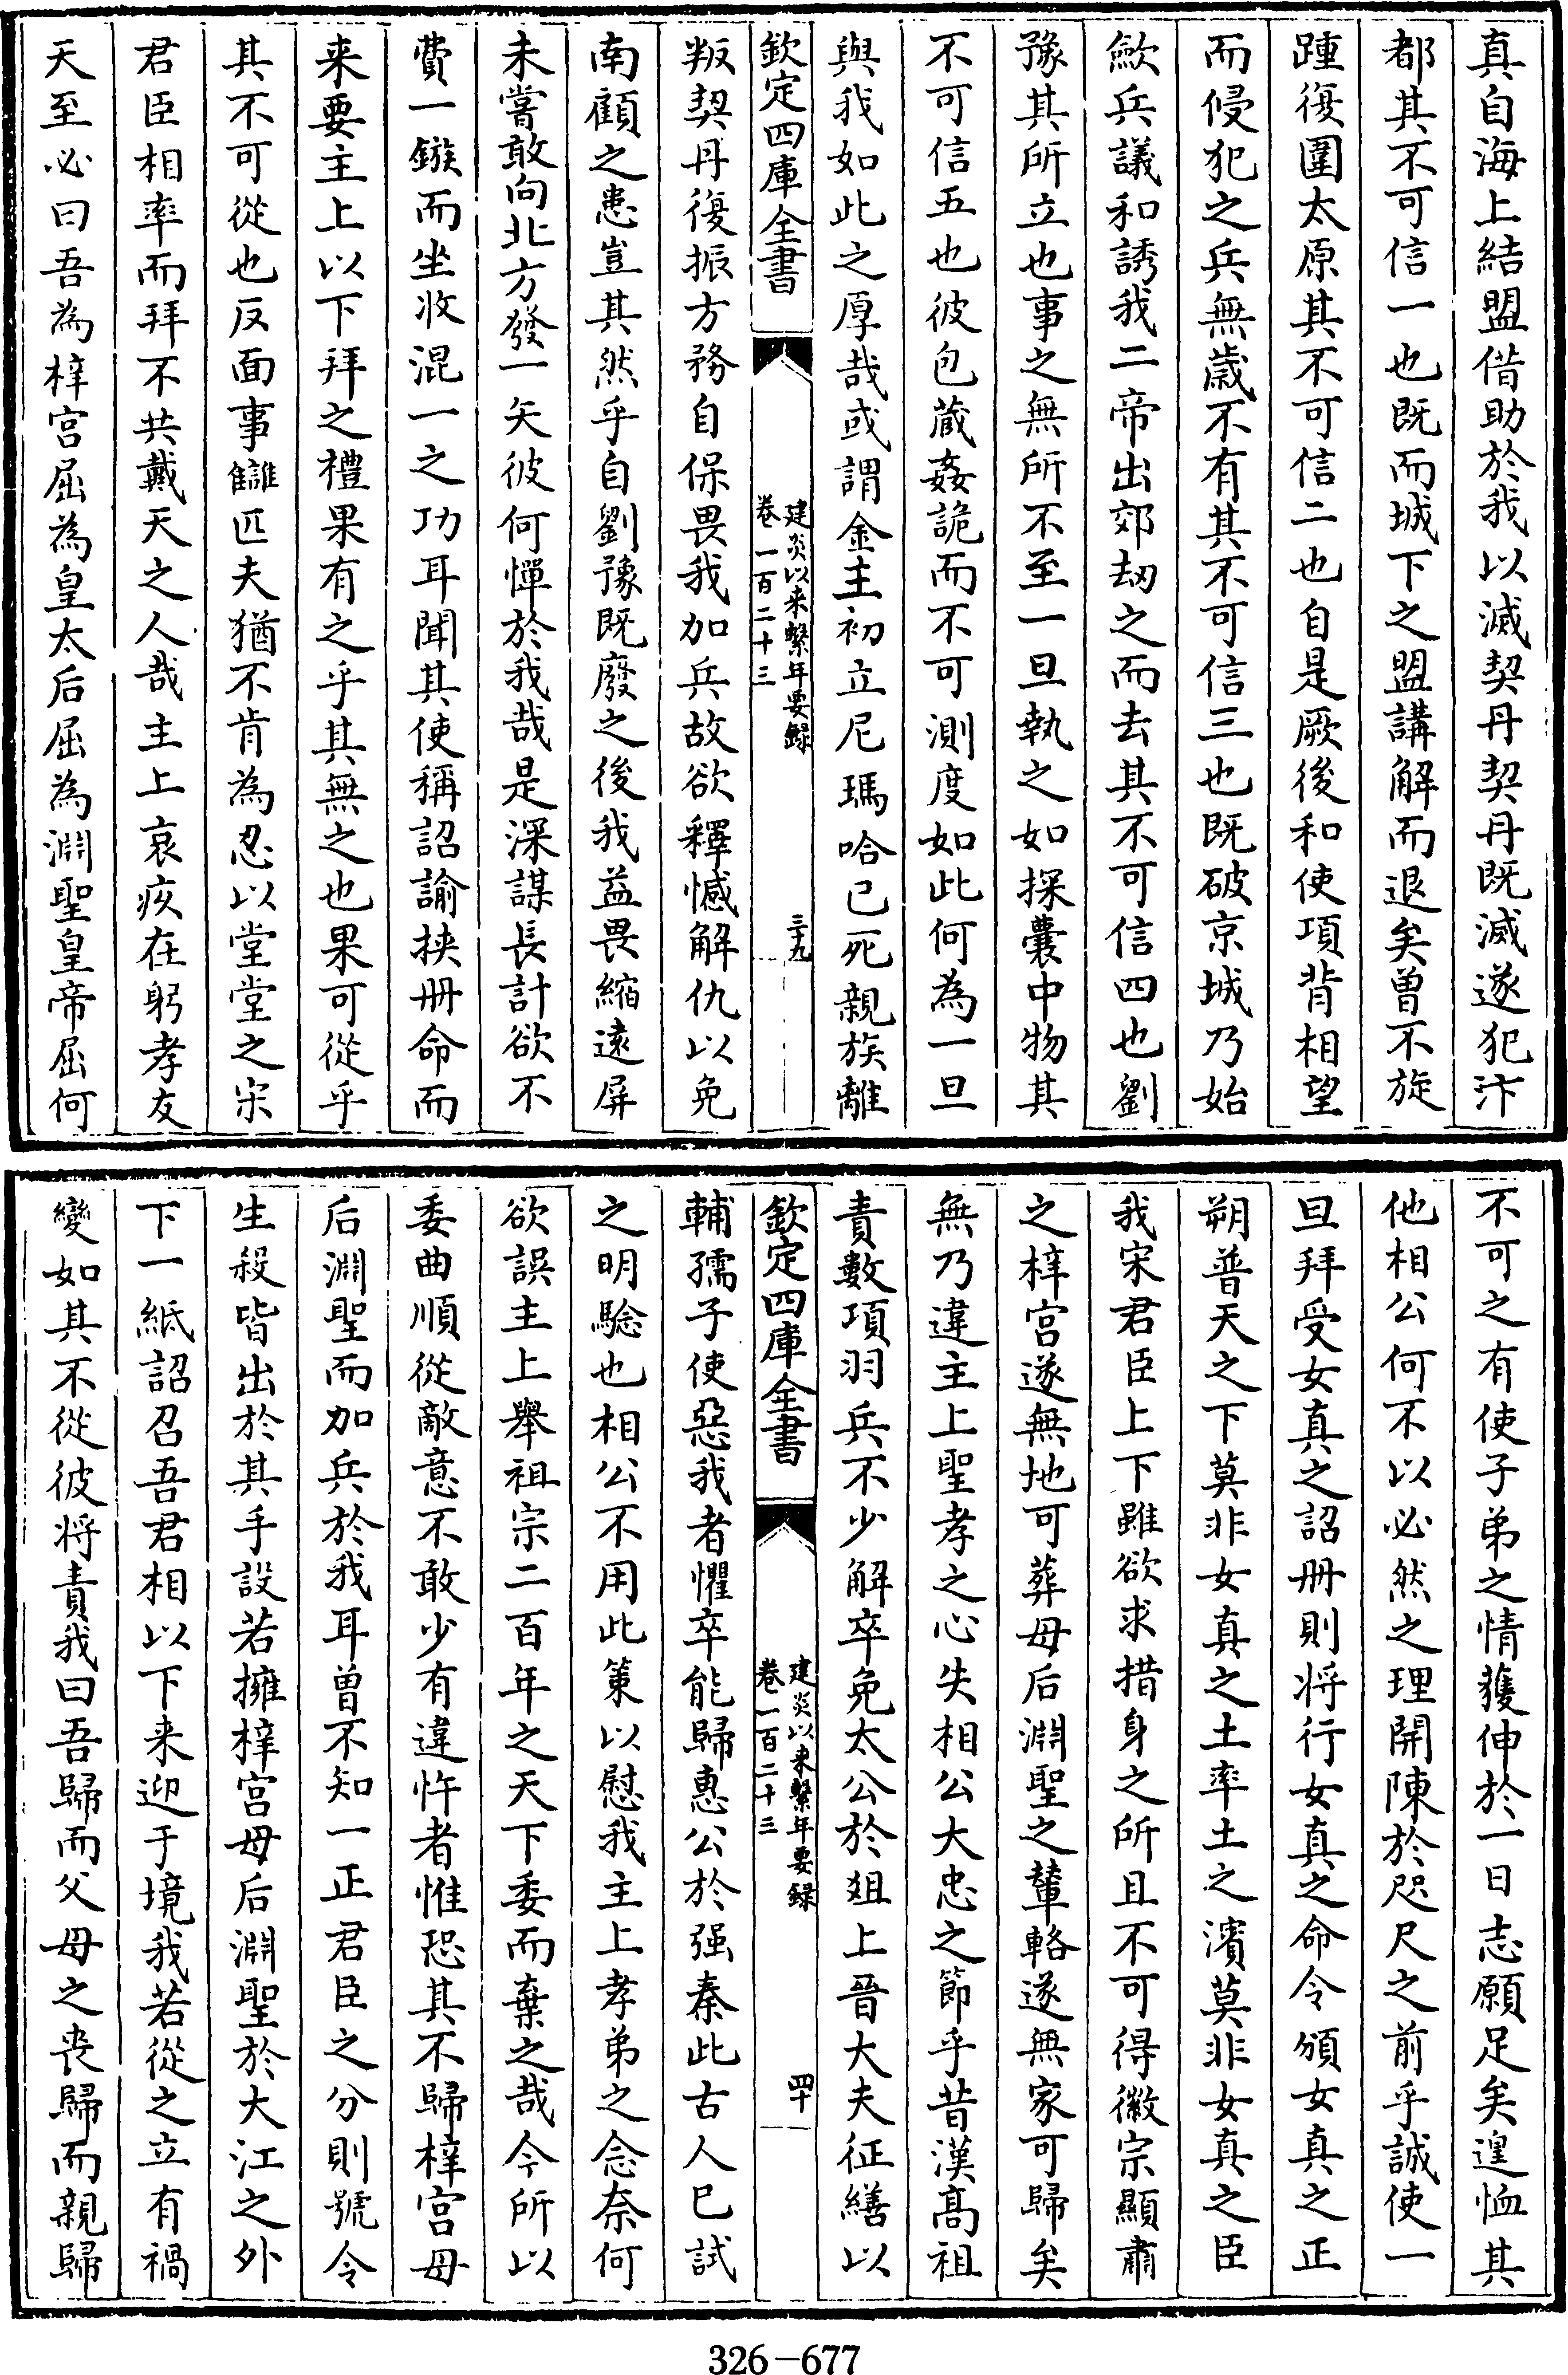 真自海上結盟借助於我以滅契丹契丹既滅遂犯汴
都其不可信一也既而城下之盟講解而退矣曽不旋
踵復圍太原其不可信二也自是厥後和使項背相望
而侵犯之兵無歳不有其不可信三也既破京城乃始
歛兵議和誘我二帝出郊刼之而去其不可信四也劉
豫其所立也事之無所不至一旦執之如探囊中物其
不可信五也彼包蔵姦詭而不可測度如此何為一旦
與我如此之厚哉或謂金主初立尼瑪哈已死親族離
欽定四庫全書
建炎以来繫年要録
卷一百二十三
三十九
叛契丹復振方務自保畏我加兵故欲釋憾解仇以免
南顧之患豈其然乎自劉豫既廢之後我益畏縮遠屏
未嘗敢向北方發一矢彼何憚於我哉是深謀長計欲不
費一鏃而坐收混一之功耳聞其使稱詔諭挾册命而
来要主上以下拜之禮果有之乎其無之也果可從乎
其不可從也反面事讎匹夫猶不肯為忍以堂堂之宋
君臣相率而拜不共戴天之人哉主上哀疚在躬孝友
天至必曰吾為梓宫屈為皇太后屈為淵聖皇帝屈何
不可之有使子弟之情獲伸於一日志願足矣遑恤其
他相公何不以必然之理開陳於咫尺之前乎誠使一
旦拜受女真之詔册則将行女真之命令頒女真之正
朔普天之下莫非女真之土率土之濱莫非女真之臣
我宋君臣上下雖欲求措身之所且不可得徽宗顯肅
之梓宫遂無地可葬母后淵聖之輦輅遂無家可歸矣
無乃違主上聖孝之心失相公大忠之節乎昔漢髙祖
責數項羽兵不少解卒免太公於俎上晉大夫征繕以
欽定四庫全書
建炎以来繫年要録
卷一百二十三
四十
輔孺子使惡我者懼卒能歸惠公於强秦此古人已試
之明驗也相公不用此策以慰我主上孝弟之念奈何
欲誤主上舉祖宗二百年之天下委而棄之哉今所以
委曲順從敵意不敢少有違忤者惟恐其不歸梓宫母
后淵聖而加兵於我耳曽不知一正君臣之分則號令
生殺皆出於其手設若擁梓宫母后淵聖於大江之外
下一紙詔召吾君相以下来迎于境我若從之立有禍
變如其不從彼将責我曰吾歸而父母之丧歸而親歸
326-677